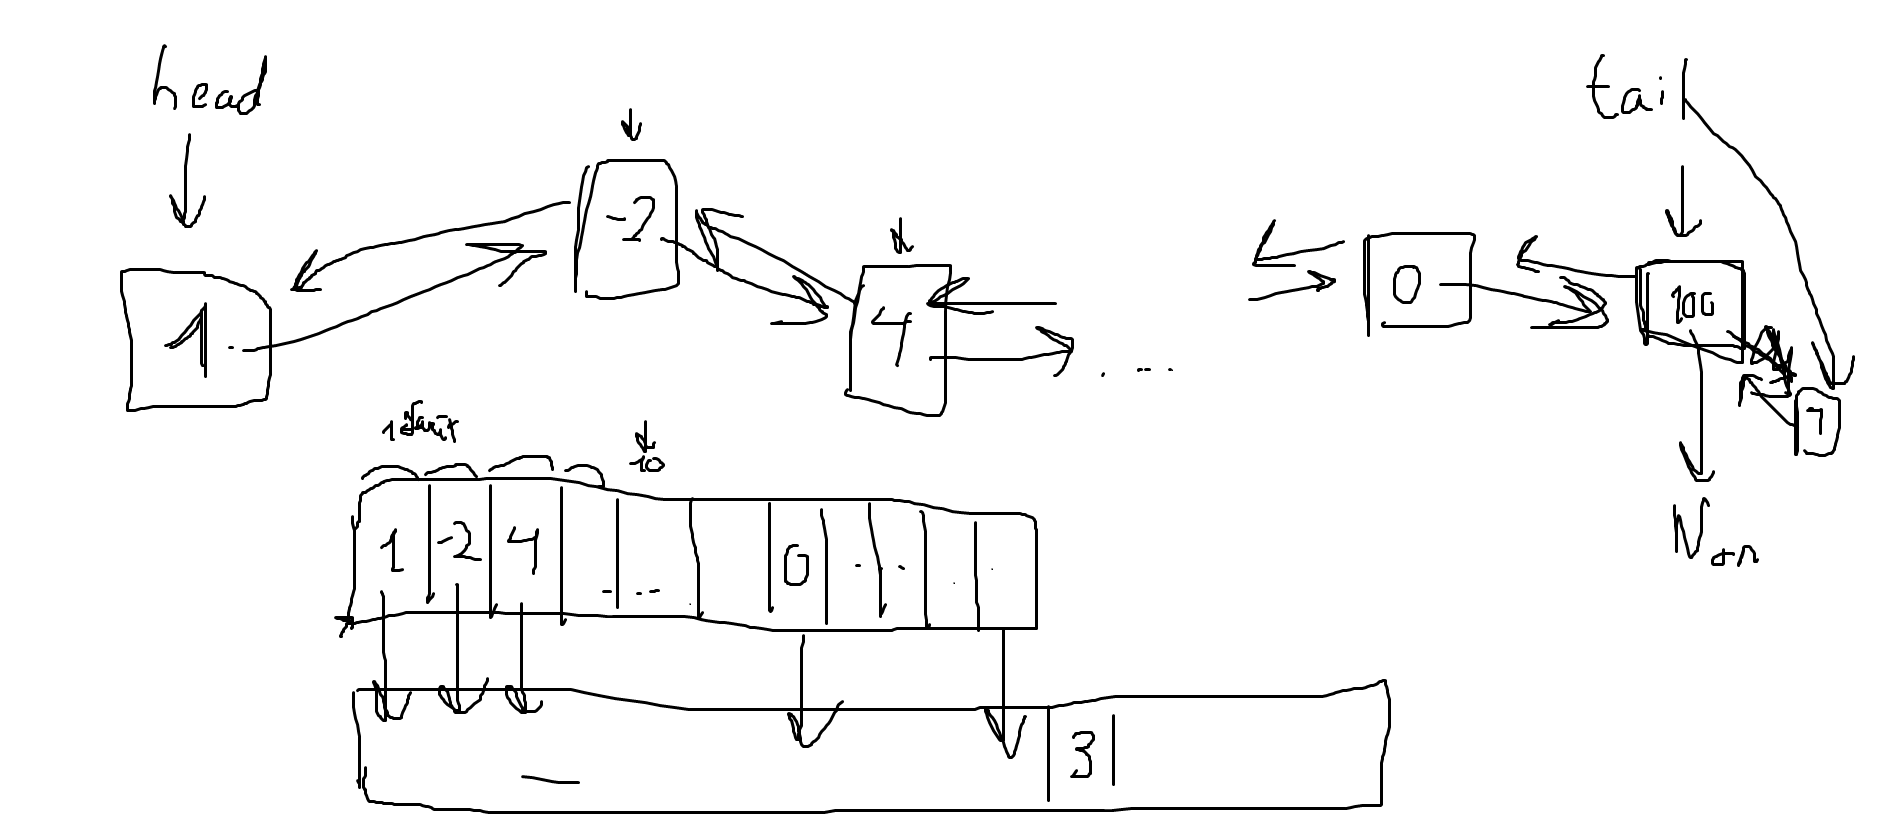 head
tail
1
-2
4
. ...
0
100
7
1
10
1 -2 4 ... 0 ...
3